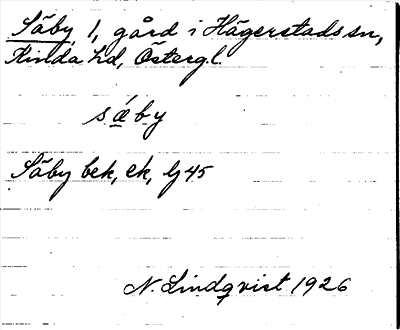 Säby 1, gård i Hägerstads sn,
Kinda hd, Östergl.
sǽby
Säby bek, ek, lj 45
N. Lindqvist 1926